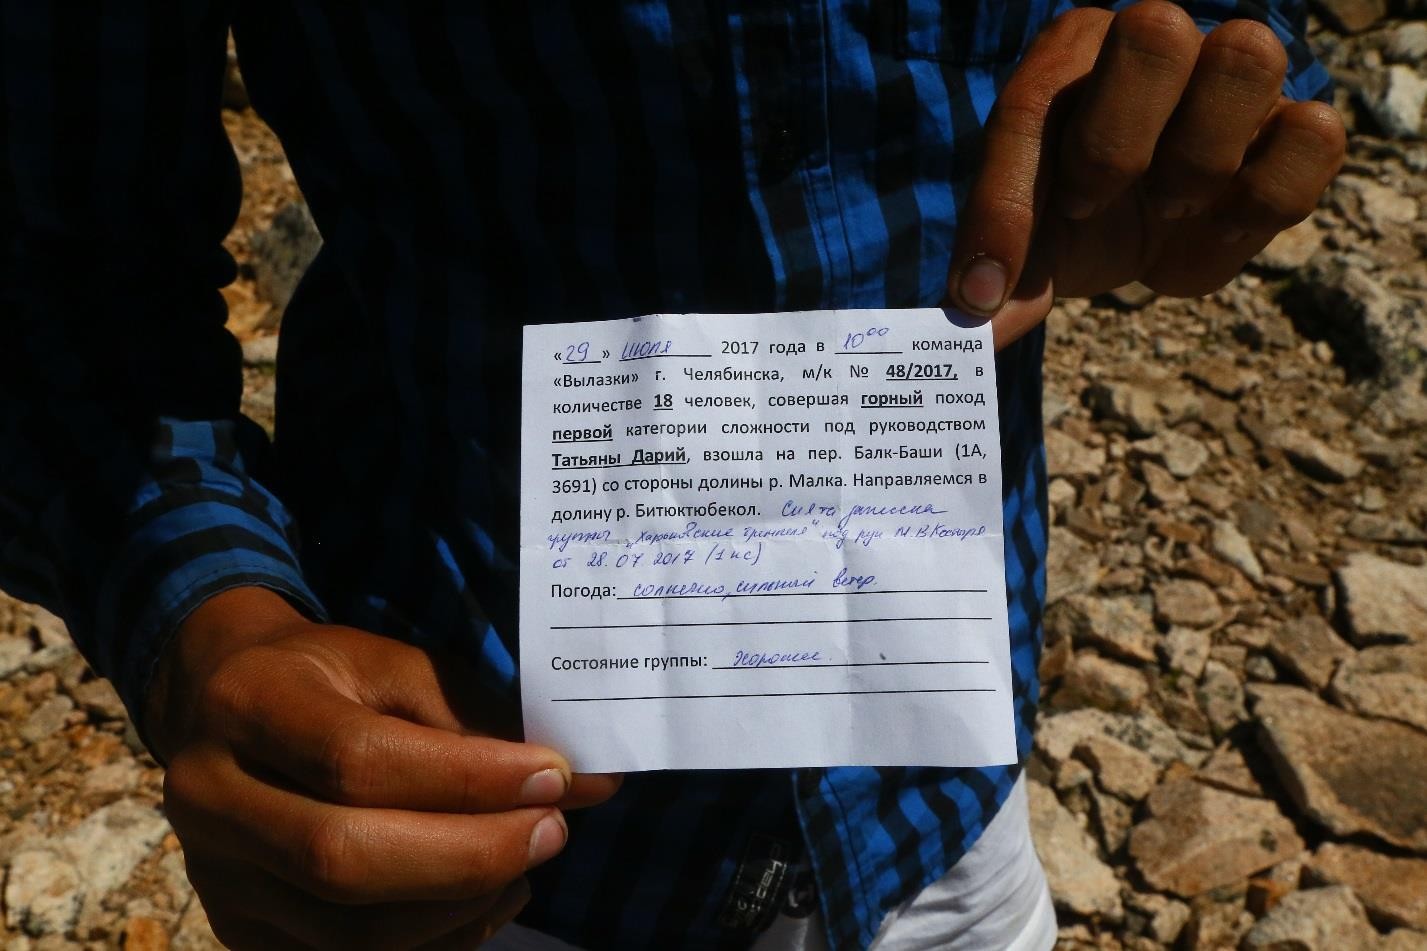 «29» июля 2017 года в 10⁰⁰ команда
«Вылазки» г. Челябинска, м/к № 48/2017, в
количестве 18 человек, совершая горный поход
первой категории сложности под руководством
Татьяны Дарий, взошла на пер. Балк-Баши (1А,
3691) со стороны долины р. Малка. Направляемся в
долину р. Битюктюбекол. Снята записка
группы под рук М.В.
от 28.07.2017 (1 кс)
Погода: солнечно, сильный ветер.
Состояние группы: Хорошее.